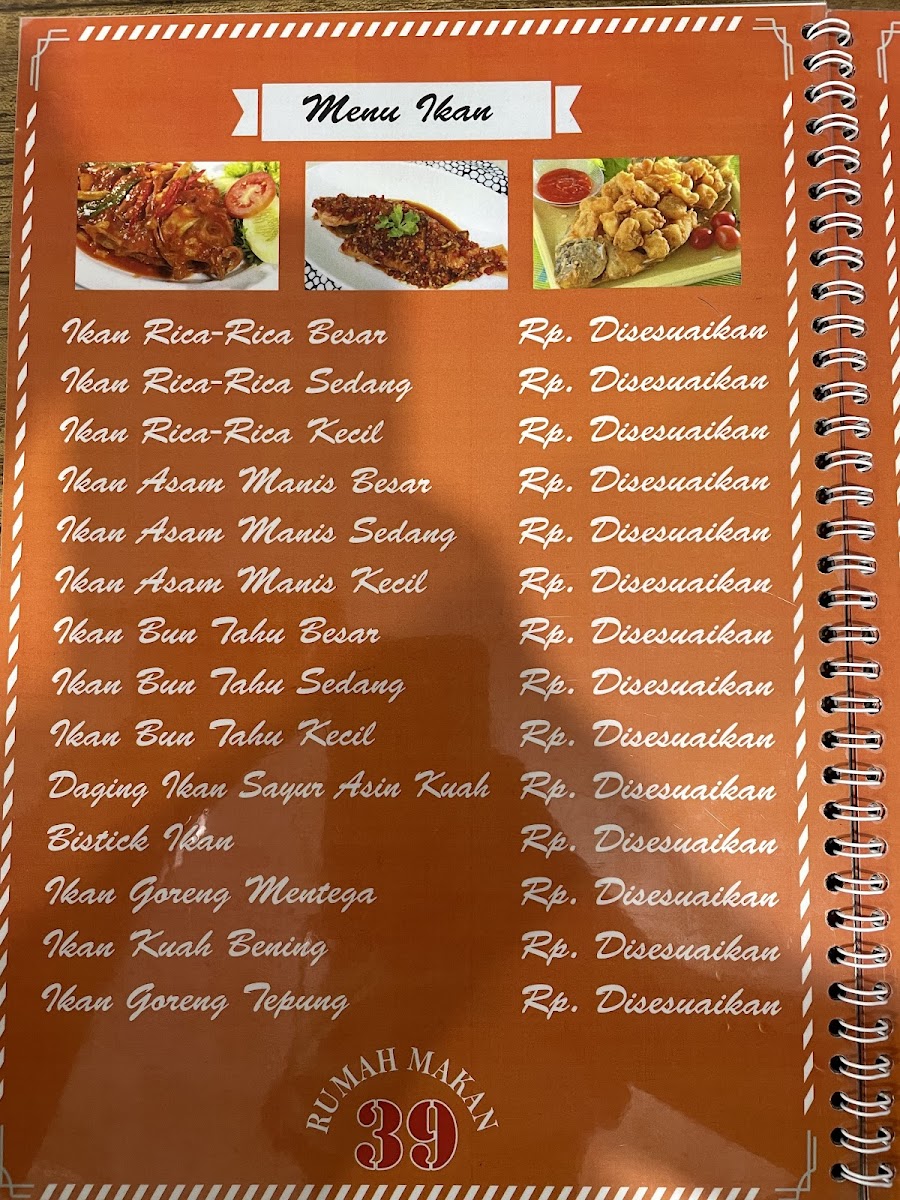 Menu Ikan
Ikan Rica-Rica Besar Rp. Disesuaikan
Ikan Rica-Rica Sedang Rp. Disesuaikan
Ikan Rica-Rica Kecil Rp. Disesuaikan
Ikan Asam Manis Besar Rp. Disesuaikan
Ikan Asam Manis Sedang Rp. Disesuaikan
Ikan Asam Manis Kecil Rp. Disesuaikan
Ikan Bun Tahu Besar Rp. Disesuaikan
Ikan Bun Tahu Sedang Rp. Disesuaikan
Ikan Bun Tahu Kecil Rp. Disesuaikan
Daging Ikan Sayur Asin Kuah Rp. Disesuaikan
Bistick Ikan Rp. Disesuaikan
Ikan Goreng Mentega Rp. Disesuaikan
Ikan Kuah Bening Rp. Disesuaikan
Ikan Goreng Tepung Rp. Disesuaikan
RUMAH MAKAN
39